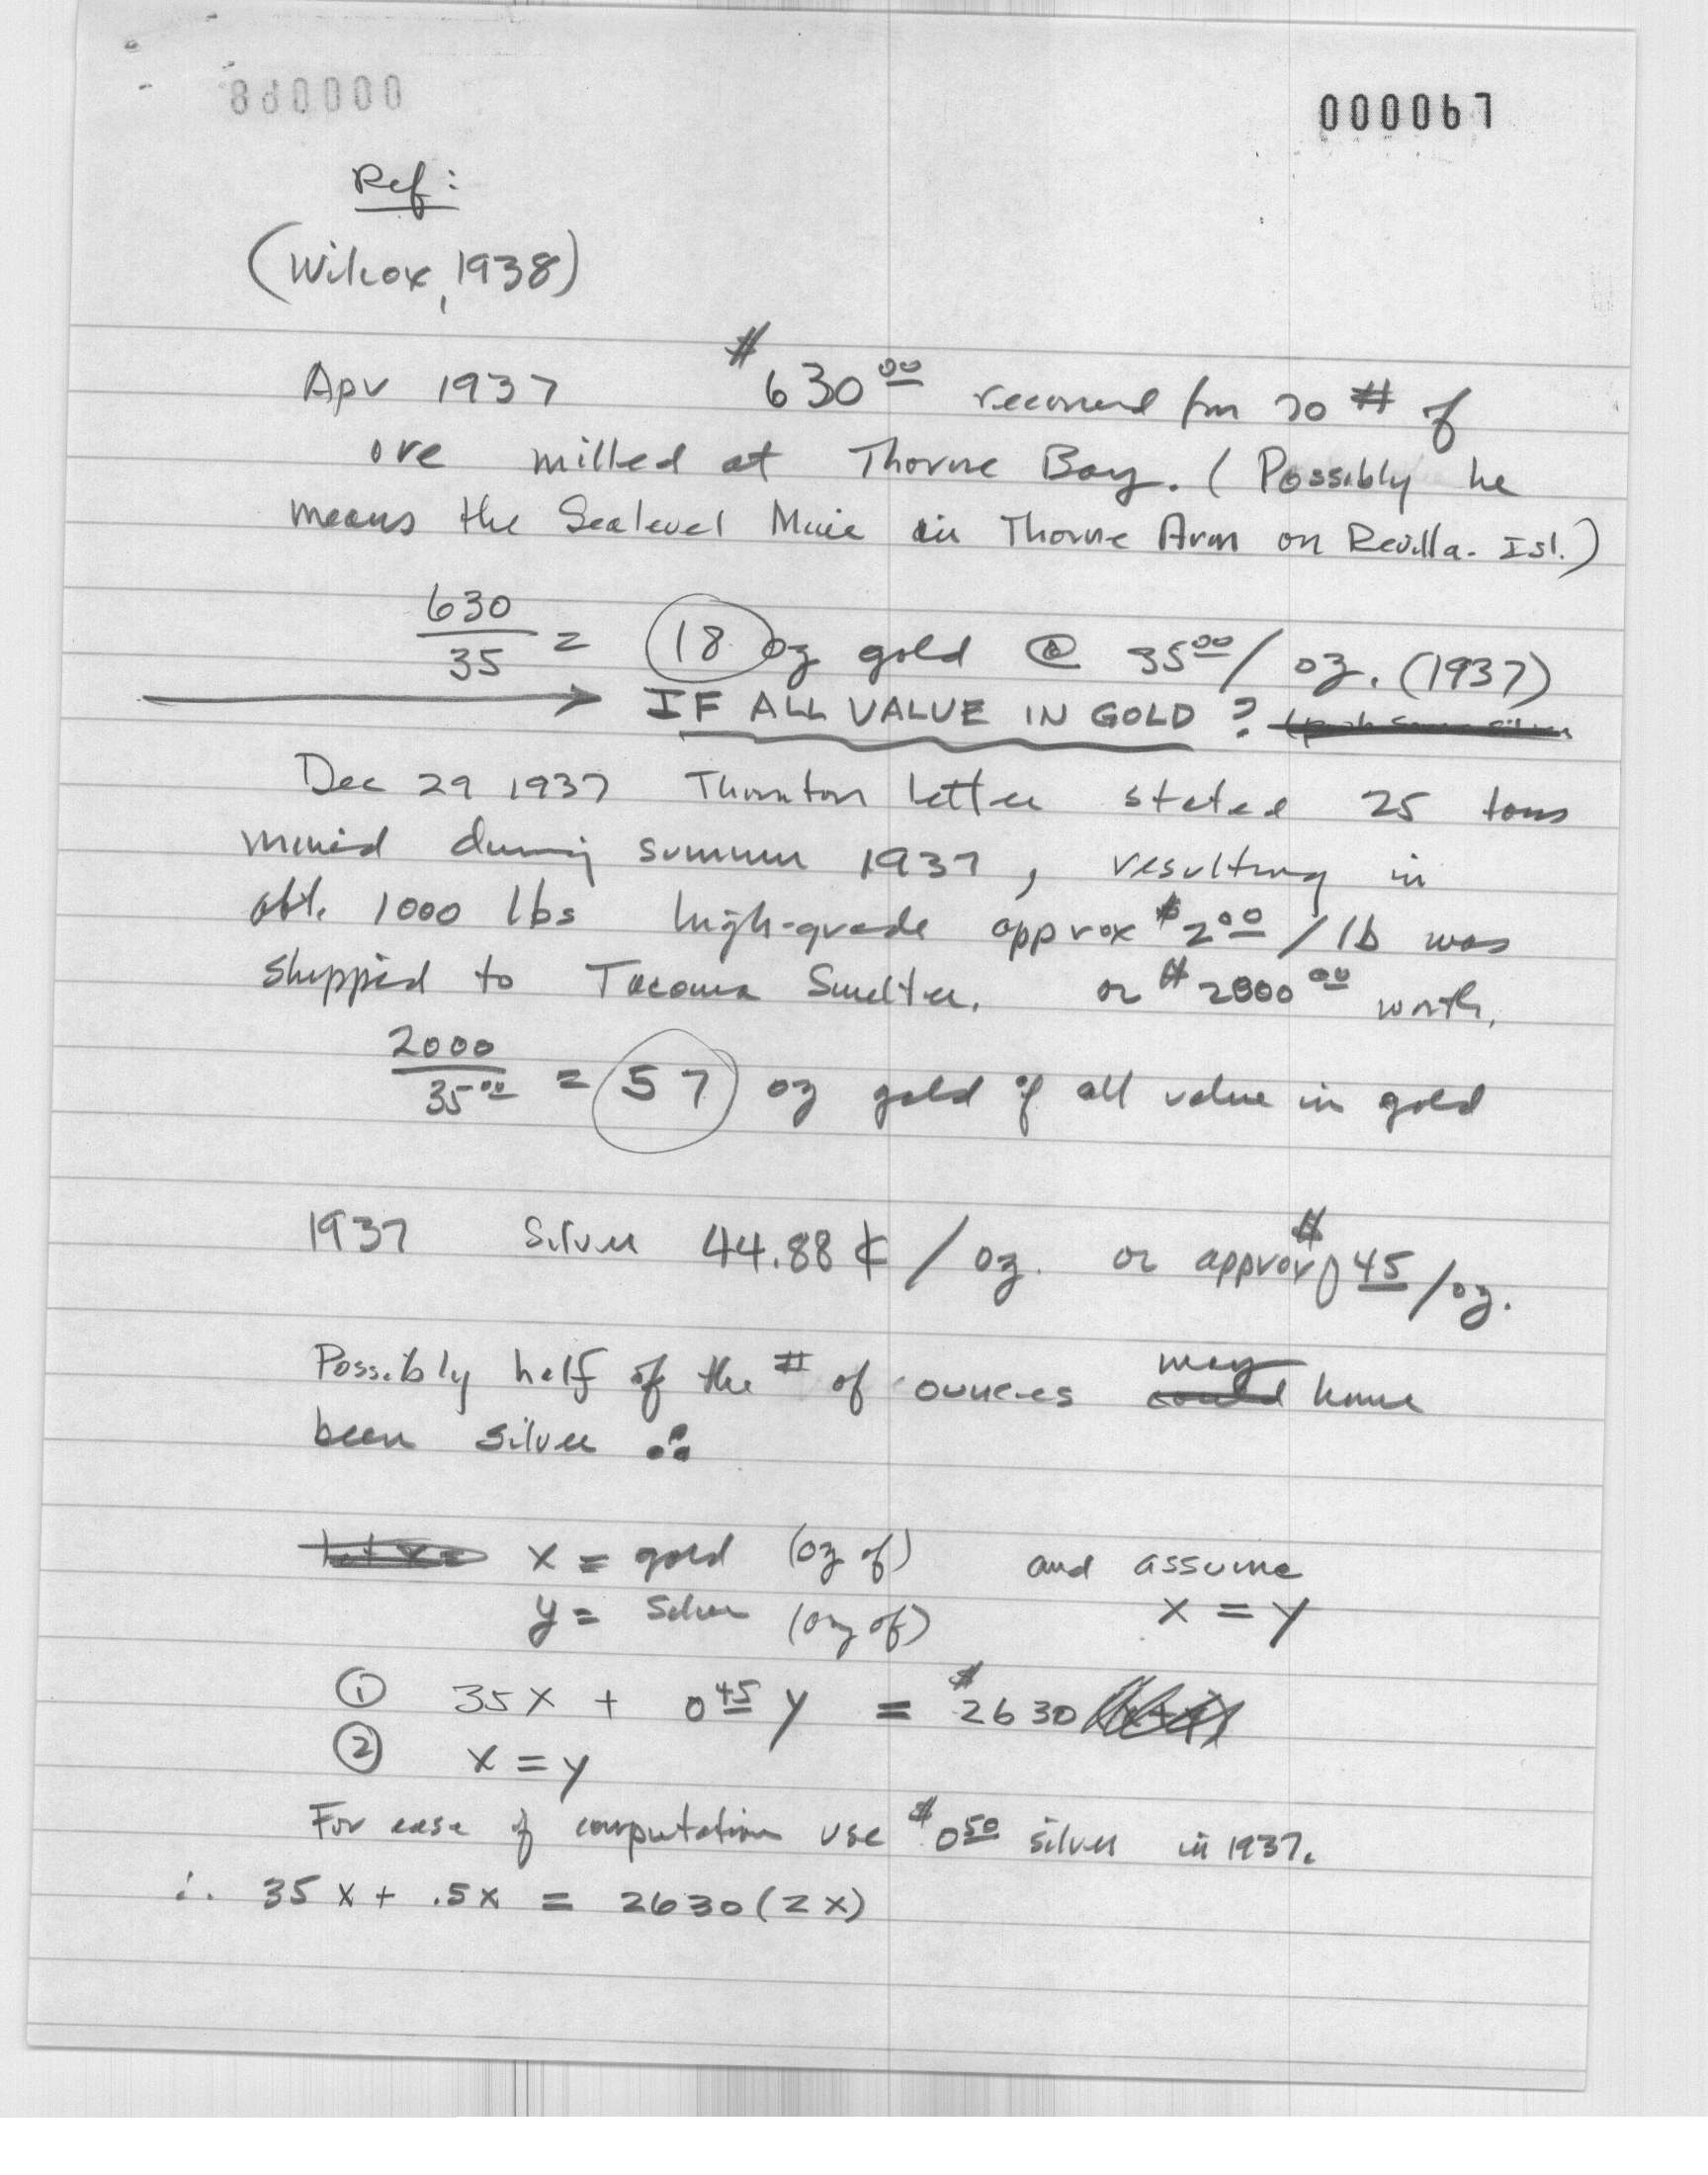 000067
Ref:
(Wilcox, 1938)
Apr 1937 $630.00 received for 70 # of
ore milled at Thorne Bay. (Possibly he
means the Sealevel Mine in Thorne Arm on Revilla. Isl.)
630/35 = 18 oz gold @ 35.00/oz. (1937)
IF ALL VALUE IN GOLD ?
Dec 29 1937 Thornton letter stated 25 tons
mined during summer 1937, resulting in
abt. 1000 lbs high-grade approx $2.00/lb was
shipped to Tacoma Smelter. or $2000.00 worth.
2000/35.00 = 57 oz gold if all value in gold
1937 Silver 44.88¢/oz. or approx $0.45/oz.
Possibly half of the # of ounces may have
been silver ∴
x = gold (oz of) and assume
y = silver (oz of) x = y
① 35x + 0.45 y = $2630
② x = y
For ease of computation use $0.50 silver in 1937.
∴ 35x + .5x = 2630(2x)